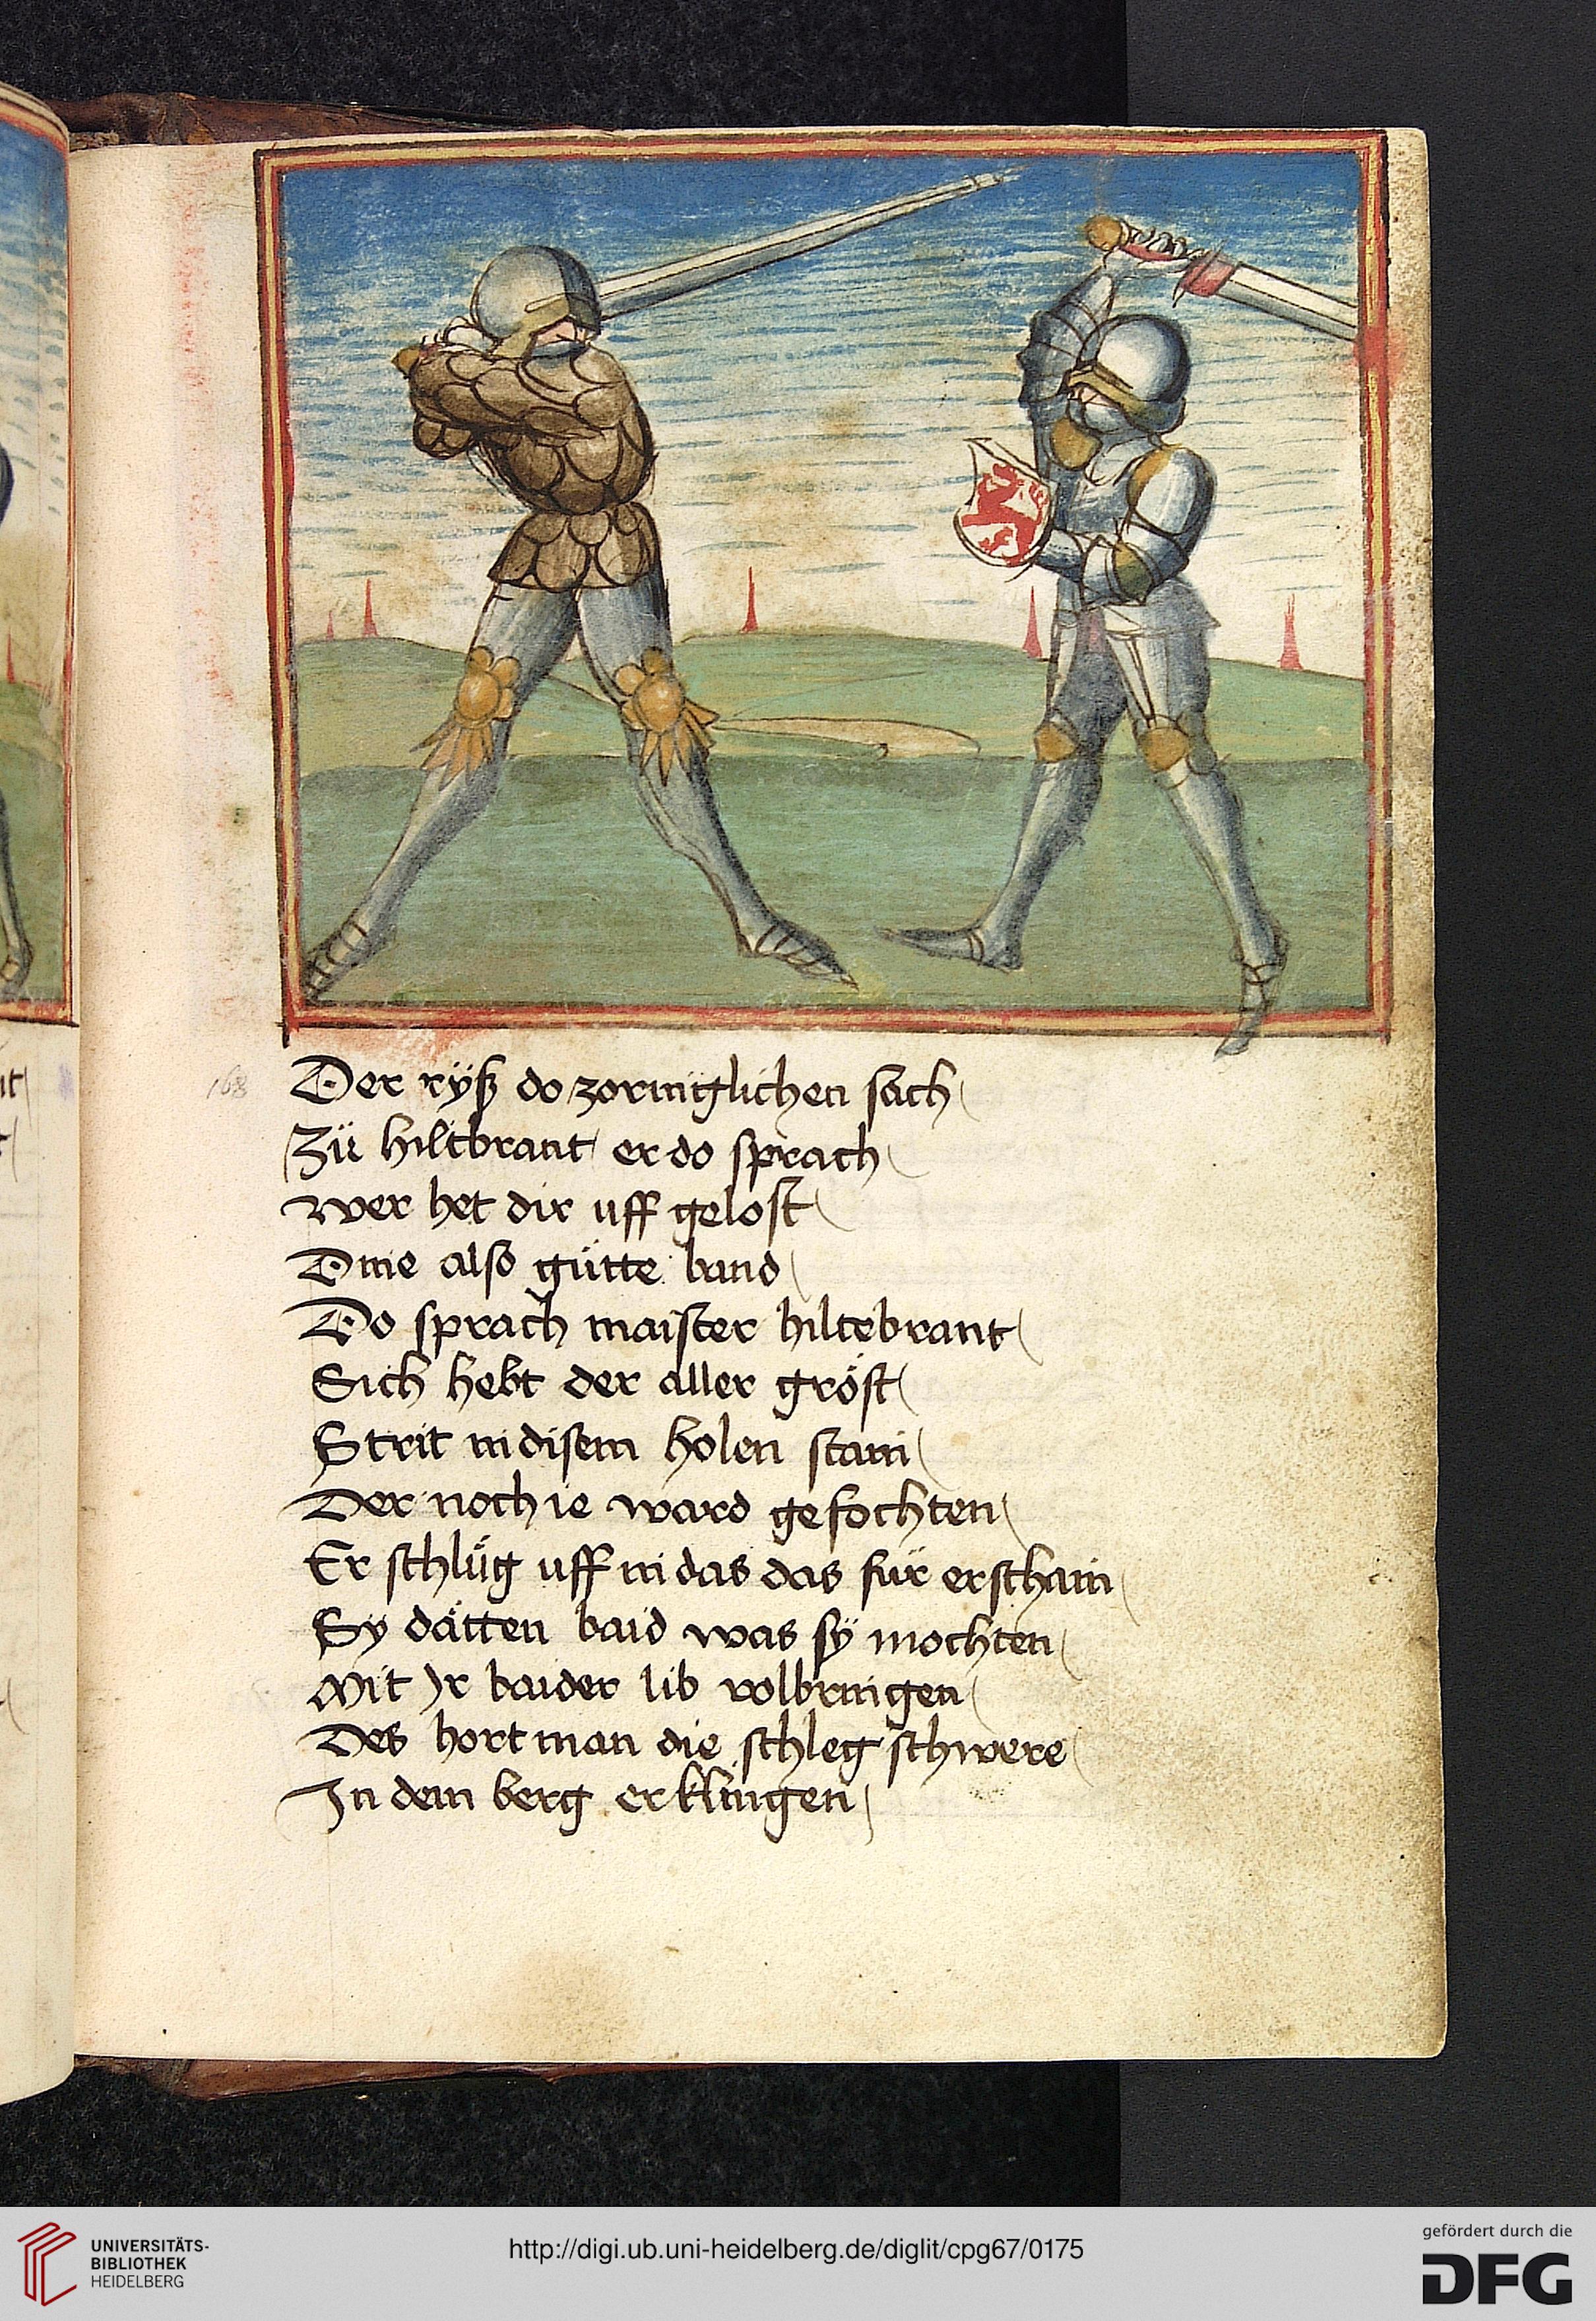 168
Der ryß do zorniglichen sach
Zü hiltbrant er do sprach
wer het dir uff gelost
Dine also gütte band
Do sprach maister hiltebrant
Sich hebt der aller gröst
Strit in disem holen stain
Der noch ie ward gefochten
Er schlüg uff in das das für erschain
Sy dätten baid was sÿ mochten
Mit Ir baider lib volbringen
Des hort man die schleg schwere
In dem berg erklingen
UNIVERSITÄTS-
BIBLIOTHEK
HEIDELBERG
http://digi.ub.uni-heidelberg.de/diglit/cpg67/0175
gefördert durch die
DFG